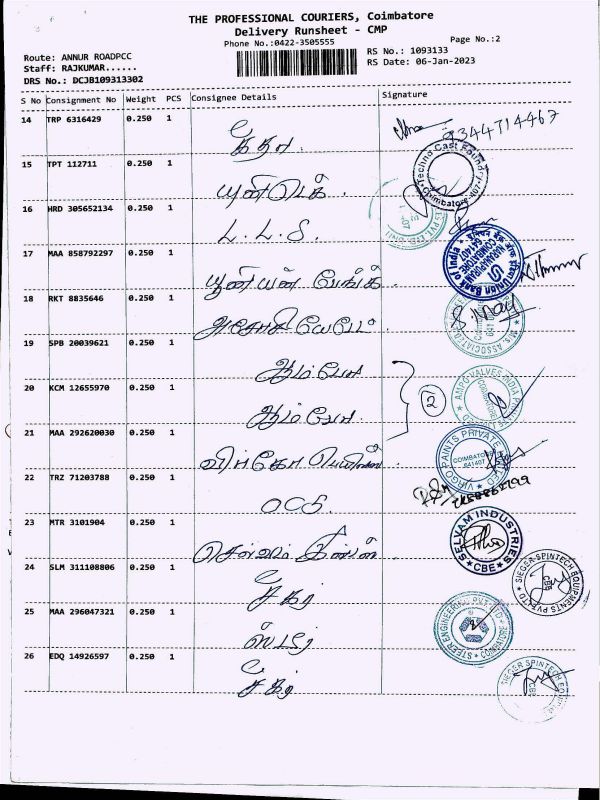 THE PROFESSIONAL COURIERS, Coimbatore
Delivery Runsheet - CMP
Phone No.:0422-3505555
Page No.:2
Route: ANNUR ROADPCC
RS No.: 1093133
Staff: RAJKUMAR......
RS Date: 06-Jan-2023
DRS No.: DCJB109313302
S No Consignment No Weight PCS Consignee Details Signature
14 TRP 6316429 0.250 1
15 TPT 112711 0.250 1
Techno Cast Foundry
Coimbatore
16 HRD 305652134 0.250 1 L.L.S.
17 MAA 858792297 0.250 1 யூனியன் பேங்க்
Union Bank of India
COIMBATORE
641407
18 RKT 8835646 0.250 1
M/S. ASSOCIATED
19 SPB 20039621 0.250 1 ஆம்போ
20 KCM 12655970 0.250 1 ஆம்போ 2
AMPO VALVES INDIA
COIMBATORE
21 MAA 292620030 0.250 1
VIRGO PAINTS PRIVATE LIMITED
COIMBATORE
641407
22 TRZ 71203788 0.250 1
23 MTR 3101904 0.250 1
SELVAM INDUSTRIES
CBE
24 SLM 311108806 0.250 1 சீகர்
SIEGER SPINTECH EQUIPMENTS PVT LTD
CBE
25 MAA 296047321 0.250 1 ஸ்டீர்
STEER ENGINEERING PVT LTD
COIMBATORE
26 EDQ 14926597 0.250 1 சீகர்
SIEGER SPINTECH